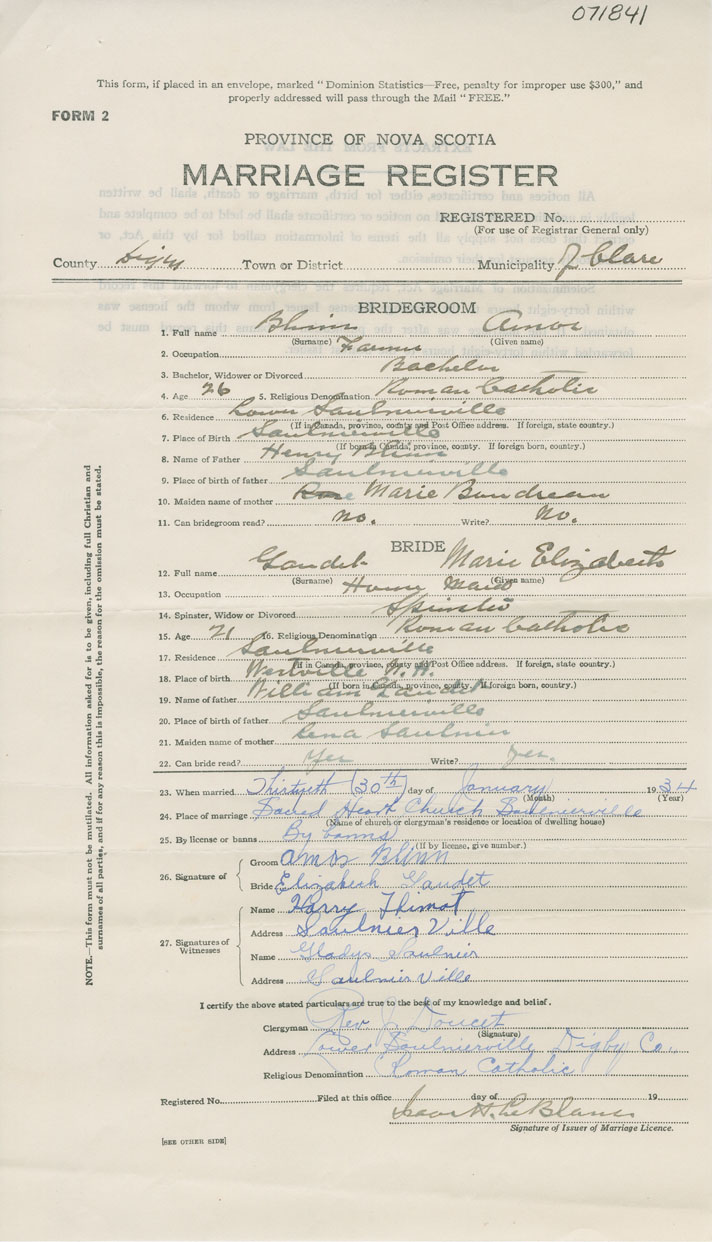 071841
This form, if placed in an envelope, marked "Dominion Statistics—Free, penalty for improper use $300," and
properly addressed will pass through the Mail "FREE."
FORM 2
PROVINCE OF NOVA SCOTIA
MARRIAGE REGISTER
REGISTERED No.
(For use of Registrar General only)
County Digby Town or District Municipality Clare
BRIDEGROOM
1. Full name Blinn Amos
(Surname) (Given name)
2. Occupation Farmer
3. Bachelor, Widower or Divorced Bachelor
4. Age 26 5. Religious Denomination Roman Catholic
6. Residence Lower Saulnierville
(If in Canada, province, county and Post Office address. If foreign, state country.)
7. Place of Birth Saulnierville
(If born in Canada, province, county. If foreign born, country.)
8. Name of Father Henry Blinn
9. Place of birth of father Saulnierville
10. Maiden name of mother Rose Marie Boudreau
11. Can bridegroom read? No. Write? No.
BRIDE
12. Full name Gaudet Marie Elizabeth
(Surname) (Given name)
13. Occupation House Maid
14. Spinster, Widow or Divorced Spinster
15. Age 21 16. Religious Denomination Roman Catholic
17. Residence Saulnierville
(If in Canada, province, county and Post Office address. If foreign, state country.)
18. Place of birth Westville N.H.
(If born in Canada, province, county. If foreign born, country.)
19. Name of father William Gaudet
20. Place of birth of father Saulnierville
21. Maiden name of mother Lena Saulnier
22. Can bride read? Yes Write? Yes.
23. When married Thirtyeth (30th) day of January 1934
(Month) (Year)
24. Place of marriage Sacred Heart Church Saulnierville
(Name of church or clergyman's residence or location of dwelling house)
25. By license or banns By banns
(If by license, give number.)
26. Signature of
Groom Amos Blinn
Bride Elizabeth Gaudet
27. Signatures of Witnesses
Name Harry Thimot
Address Saulnier Ville
Name Gladys Saulnier
Address Saulnier Ville
I certify the above stated particulars are true to the best of my knowledge and belief.
Clergyman Rev J Doucet
(Signature)
Address Lower Saulnierville Digby Co.
Religious Denomination Roman Catholic
Registered No. Filed at this office day of 19
H. LeBlanc
Signature of Issuer of Marriage Licence.
[SEE OTHER SIDE]
NOTE.—This form must not be mutilated. All information asked for is to be given, including full Christian and
surnames of all parties, and if for any reason this is impossible, the reason for the omission must be stated.